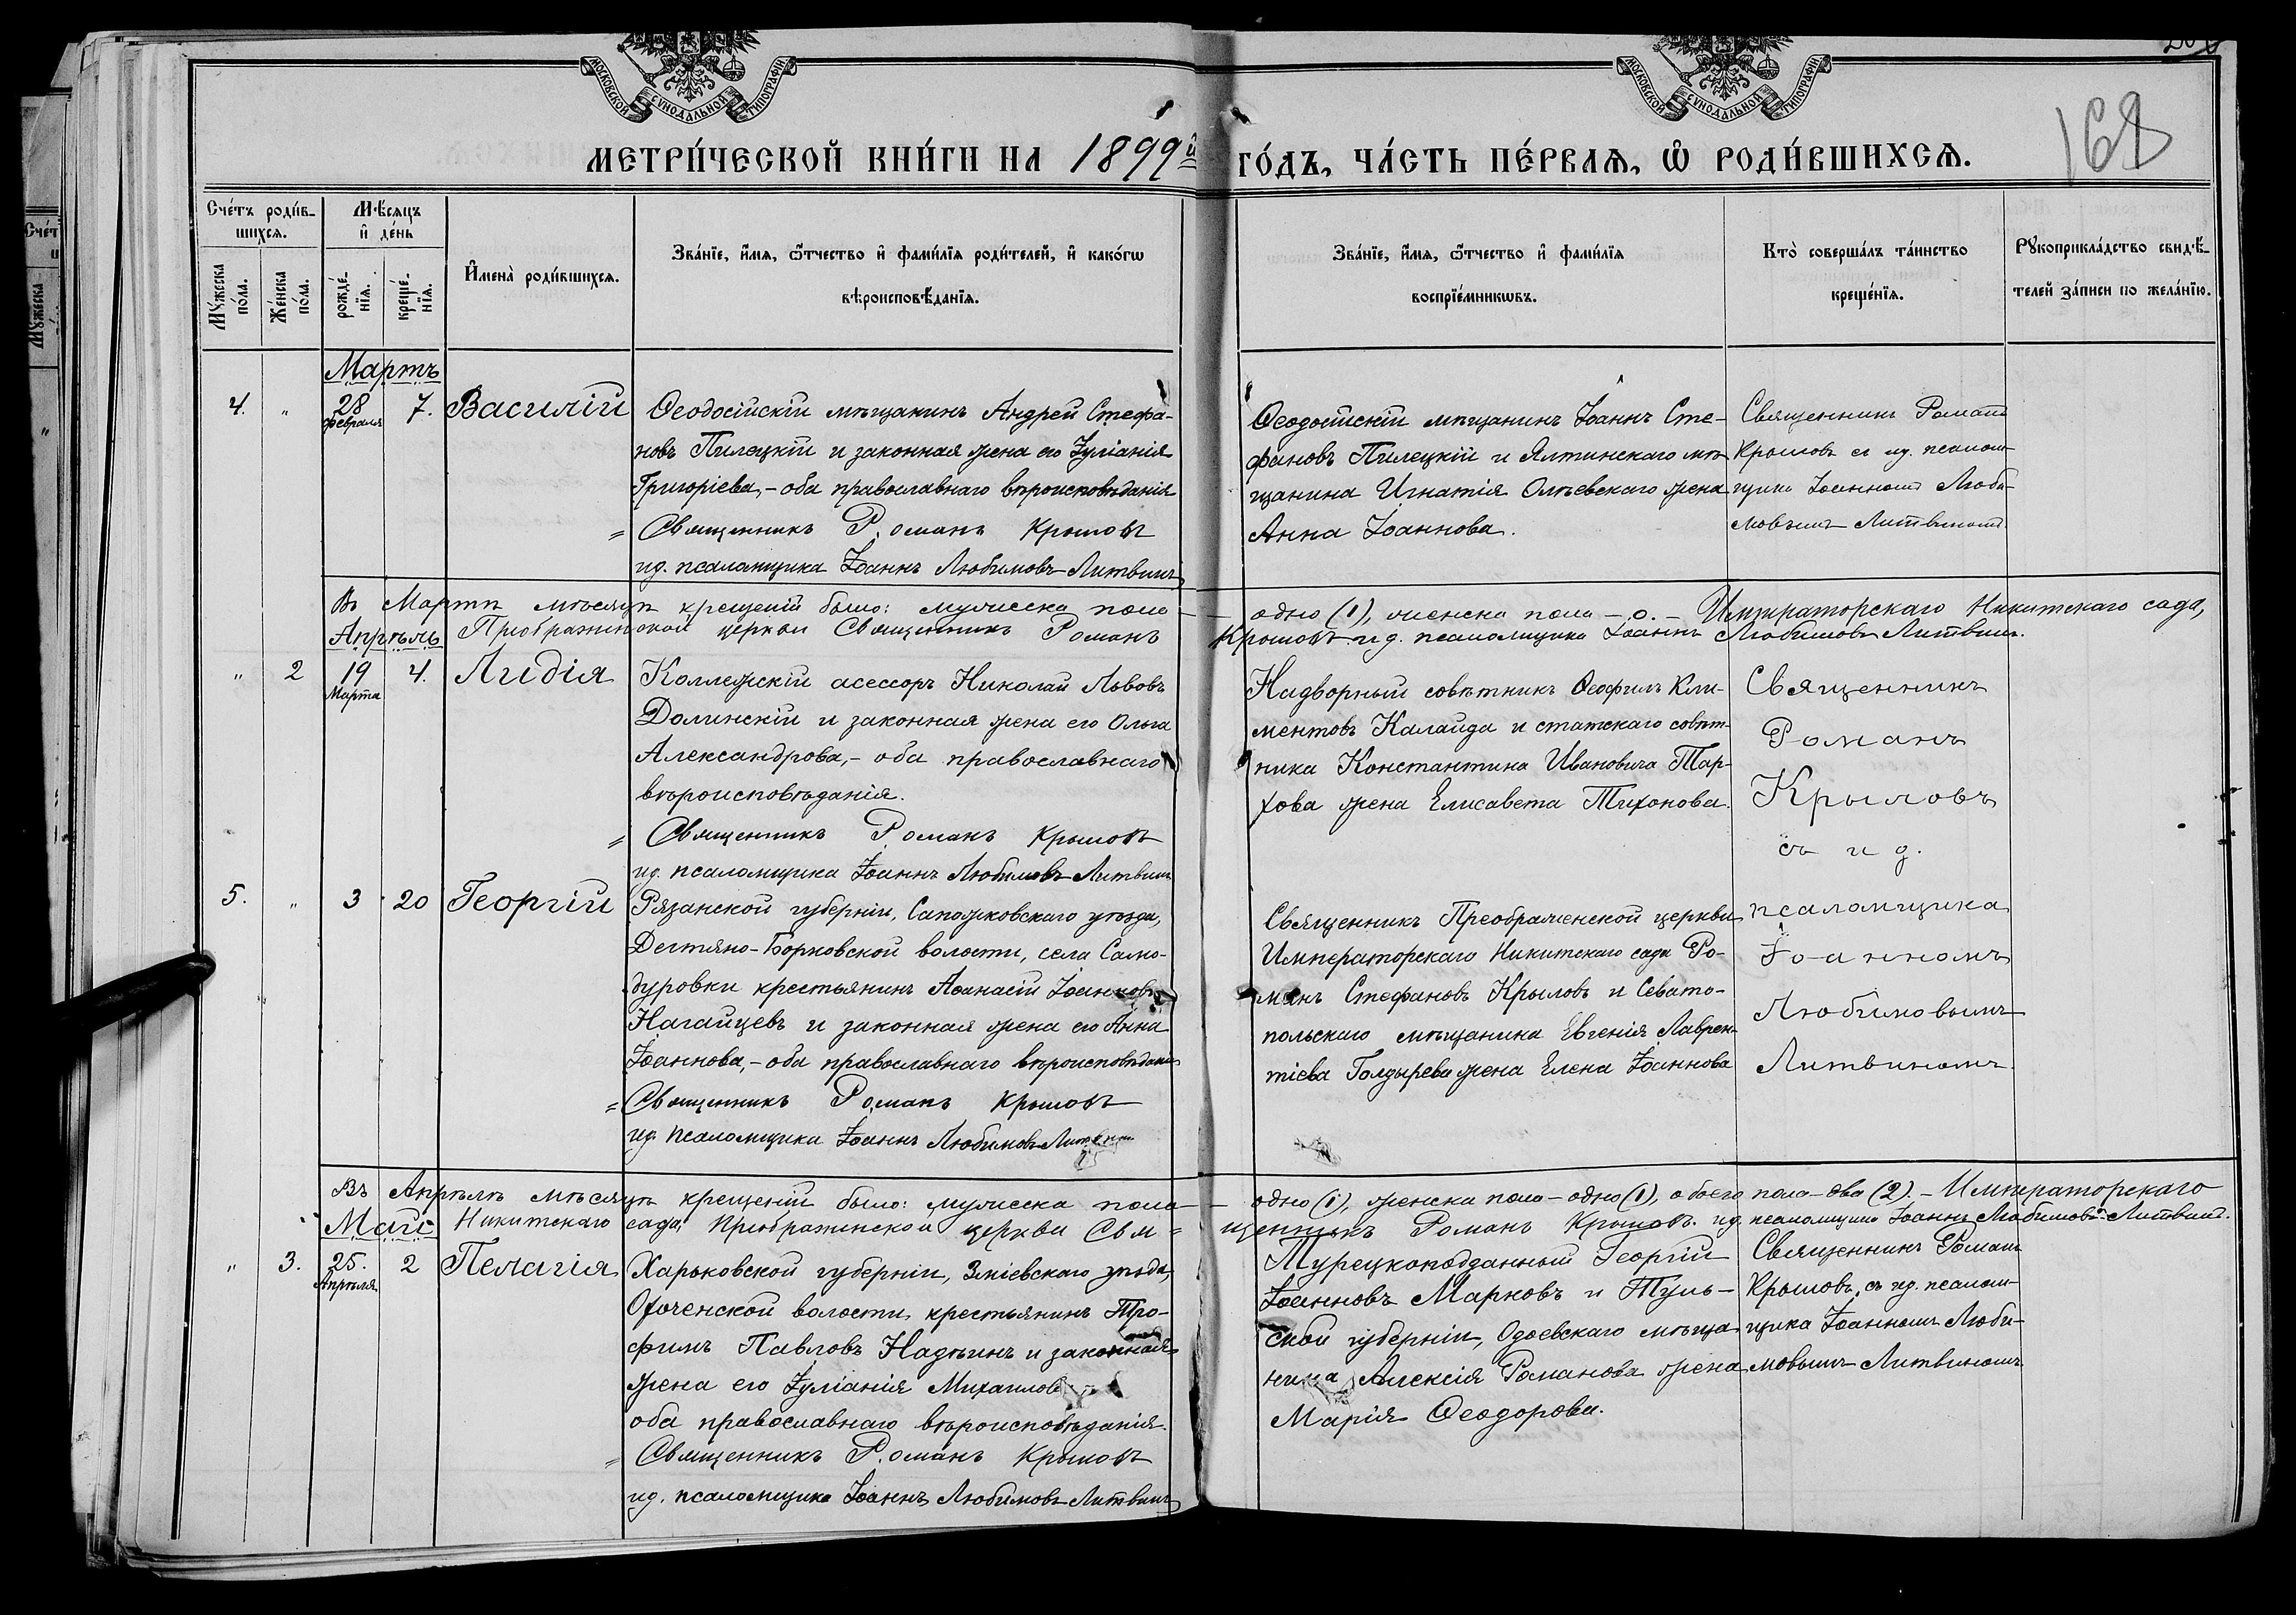 МОСКОВСКОЙ СѴНОДАЛЬНОЙ ТИПОГРАФІИ
МОСКОВСКОЙ СѴНОДАЛЬНОЙ ТИПОГРАФІИ
168
МЕТРИ́ЧЕСКОЙ КНИ́ГИ НА 1899й ГО́ДЪ, ЧА́СТЬ ПЕ́РВАѦ, Ѡ РОДИ́ВШИХСѦ.
Сче́тъ роди́в-
шихсѧ.
Мꙋ́жеска
по́ла.
Же́нска
по́ла.
Мѣ́сѧцъ
и҆ де́нь
рожде́-
нїѧ.
креще́-
нїѧ.
И҆мена̀ роди́вшихсѧ.
Зва́нїе, и҆́мѧ, ѻ҆́тчество и҆ фами́лїѧ роди́телей, и҆ како́гѡ
вѣроисповѣ́данїѧ.
Зва́нїе, и҆́мѧ, ѻ҆́тчество и҆ фами́лїѧ
воспрїе́мникѡвъ.
Кто̀ соверша́лъ та́инство
креще́нїѧ.
Рꙋкоприкла́дство свидѣ́-
телей за́писи по жела́нїю.
Мартъ
4. " 28 февраля 7. Василій
Ѳеодосійскій мѣщанинъ Андрей Стефа-
новъ Пилецкій и законная жена его Іуліанія
Григоріева,- оба православнаго вѣроисповѣданія
Священникъ Романъ Крыловъ
ид. псаломщика Іоаннъ Любимовъ-Литвинъ
Ѳеодосійскій мѣщанинъ Іоаннъ Сте-
фановъ Пилецкій и Ялтинскаго мѣ-
щанина Игнатія жена
Анна Іоаннова.
Священникъ Романъ
Крыловъ съ ид. псалом-
щика Іоанномъ Люби-
мовымъ Литвиномъ
Въ Мартѣ мѣсяцѣ крещеній было: мужеска пола - одно (1), женска пола - о. - Императорскаго Никитскаго сада,
Преображенской церкви Священникъ Романъ Крыловъ. ид. псаломщика Іоаннъ Любимовъ Литвинъ.
Апрѣль
" 2 19 Марта 4. Лидія
Коллежскій асессоръ Николай Львовъ
Долинскій и законная жена его Ольга
Александрова,- оба православнаго
вѣроисповѣданія.
Священникъ Романъ Крыловъ
ид. псаломщика Іоаннъ Любимовъ Литвинъ
Надворный совѣтникъ Ѳеофилъ Кли-
ментовъ Калайда и статскаго совѣт-
ника Константина Ивановича Тар-
хова жена Елисавета Тихонова.
Священникъ
Романъ
Крыловъ
съ и д.
псаломщика
Іоанномъ
Любимовымъ
Литвиномъ.
5. " 3 20 Георгій
Рязанской губерніи, Сапожковскаго уѣзда,
Дегтяно-Борковской волости, села Само-
дуровки крестьянинъ Аѳанасій Іоанновъ
Нагайцевъ и законная жена его Анна
Іоаннова,- оба православнаго вѣроисповѣданія
Священникъ Романъ Крыловъ
ид. псаломщика Іоаннъ Любимовъ Литвинъ
Священникъ Преображенской церкви
Императорскаго Никитскаго сада Ро-
манъ Стефановъ Крыловъ и Севасто-
польскаго мѣщанина Евгенія Лаврен-
тіева Голдырева жена Елена Іоаннова
Въ Апрѣлѣ мѣсяцѣ крещеній было: мужеска пола - одно (1), женска пола - одно (1), обоего пола - два (2). - Императорскаго
Никитскаго сада, Преображенской церкви Свя-щенникъ Романъ Крыловъ. ид. псаломщика Іоаннъ Любимовъ-Литвинъ.
Май
" 3. 25. Апрѣля 2 Пелагія
Харьковской губерніи, Зміевскаго уѣзда,
Охоченской волости, крестьянинъ Тро-
фимъ Павловъ и законная
жена его Іуліанія Михаилова
оба православнаго вѣроисповѣданія.
Священникъ Романъ Крыловъ
ид. псаломщика Іоаннъ Любимовъ Литвинъ
Турецкоподданный Георгій
Іоанновъ Марковъ и Туль-
ской губерніи, Одоевскаго мѣща
нина Алексія Романова жена
Марія Ѳеодорова.
Священникъ Романъ
Крыловъ, съ ид. псалом-
щика Іоанномъ Люби-
мовымъ Литвиномъ